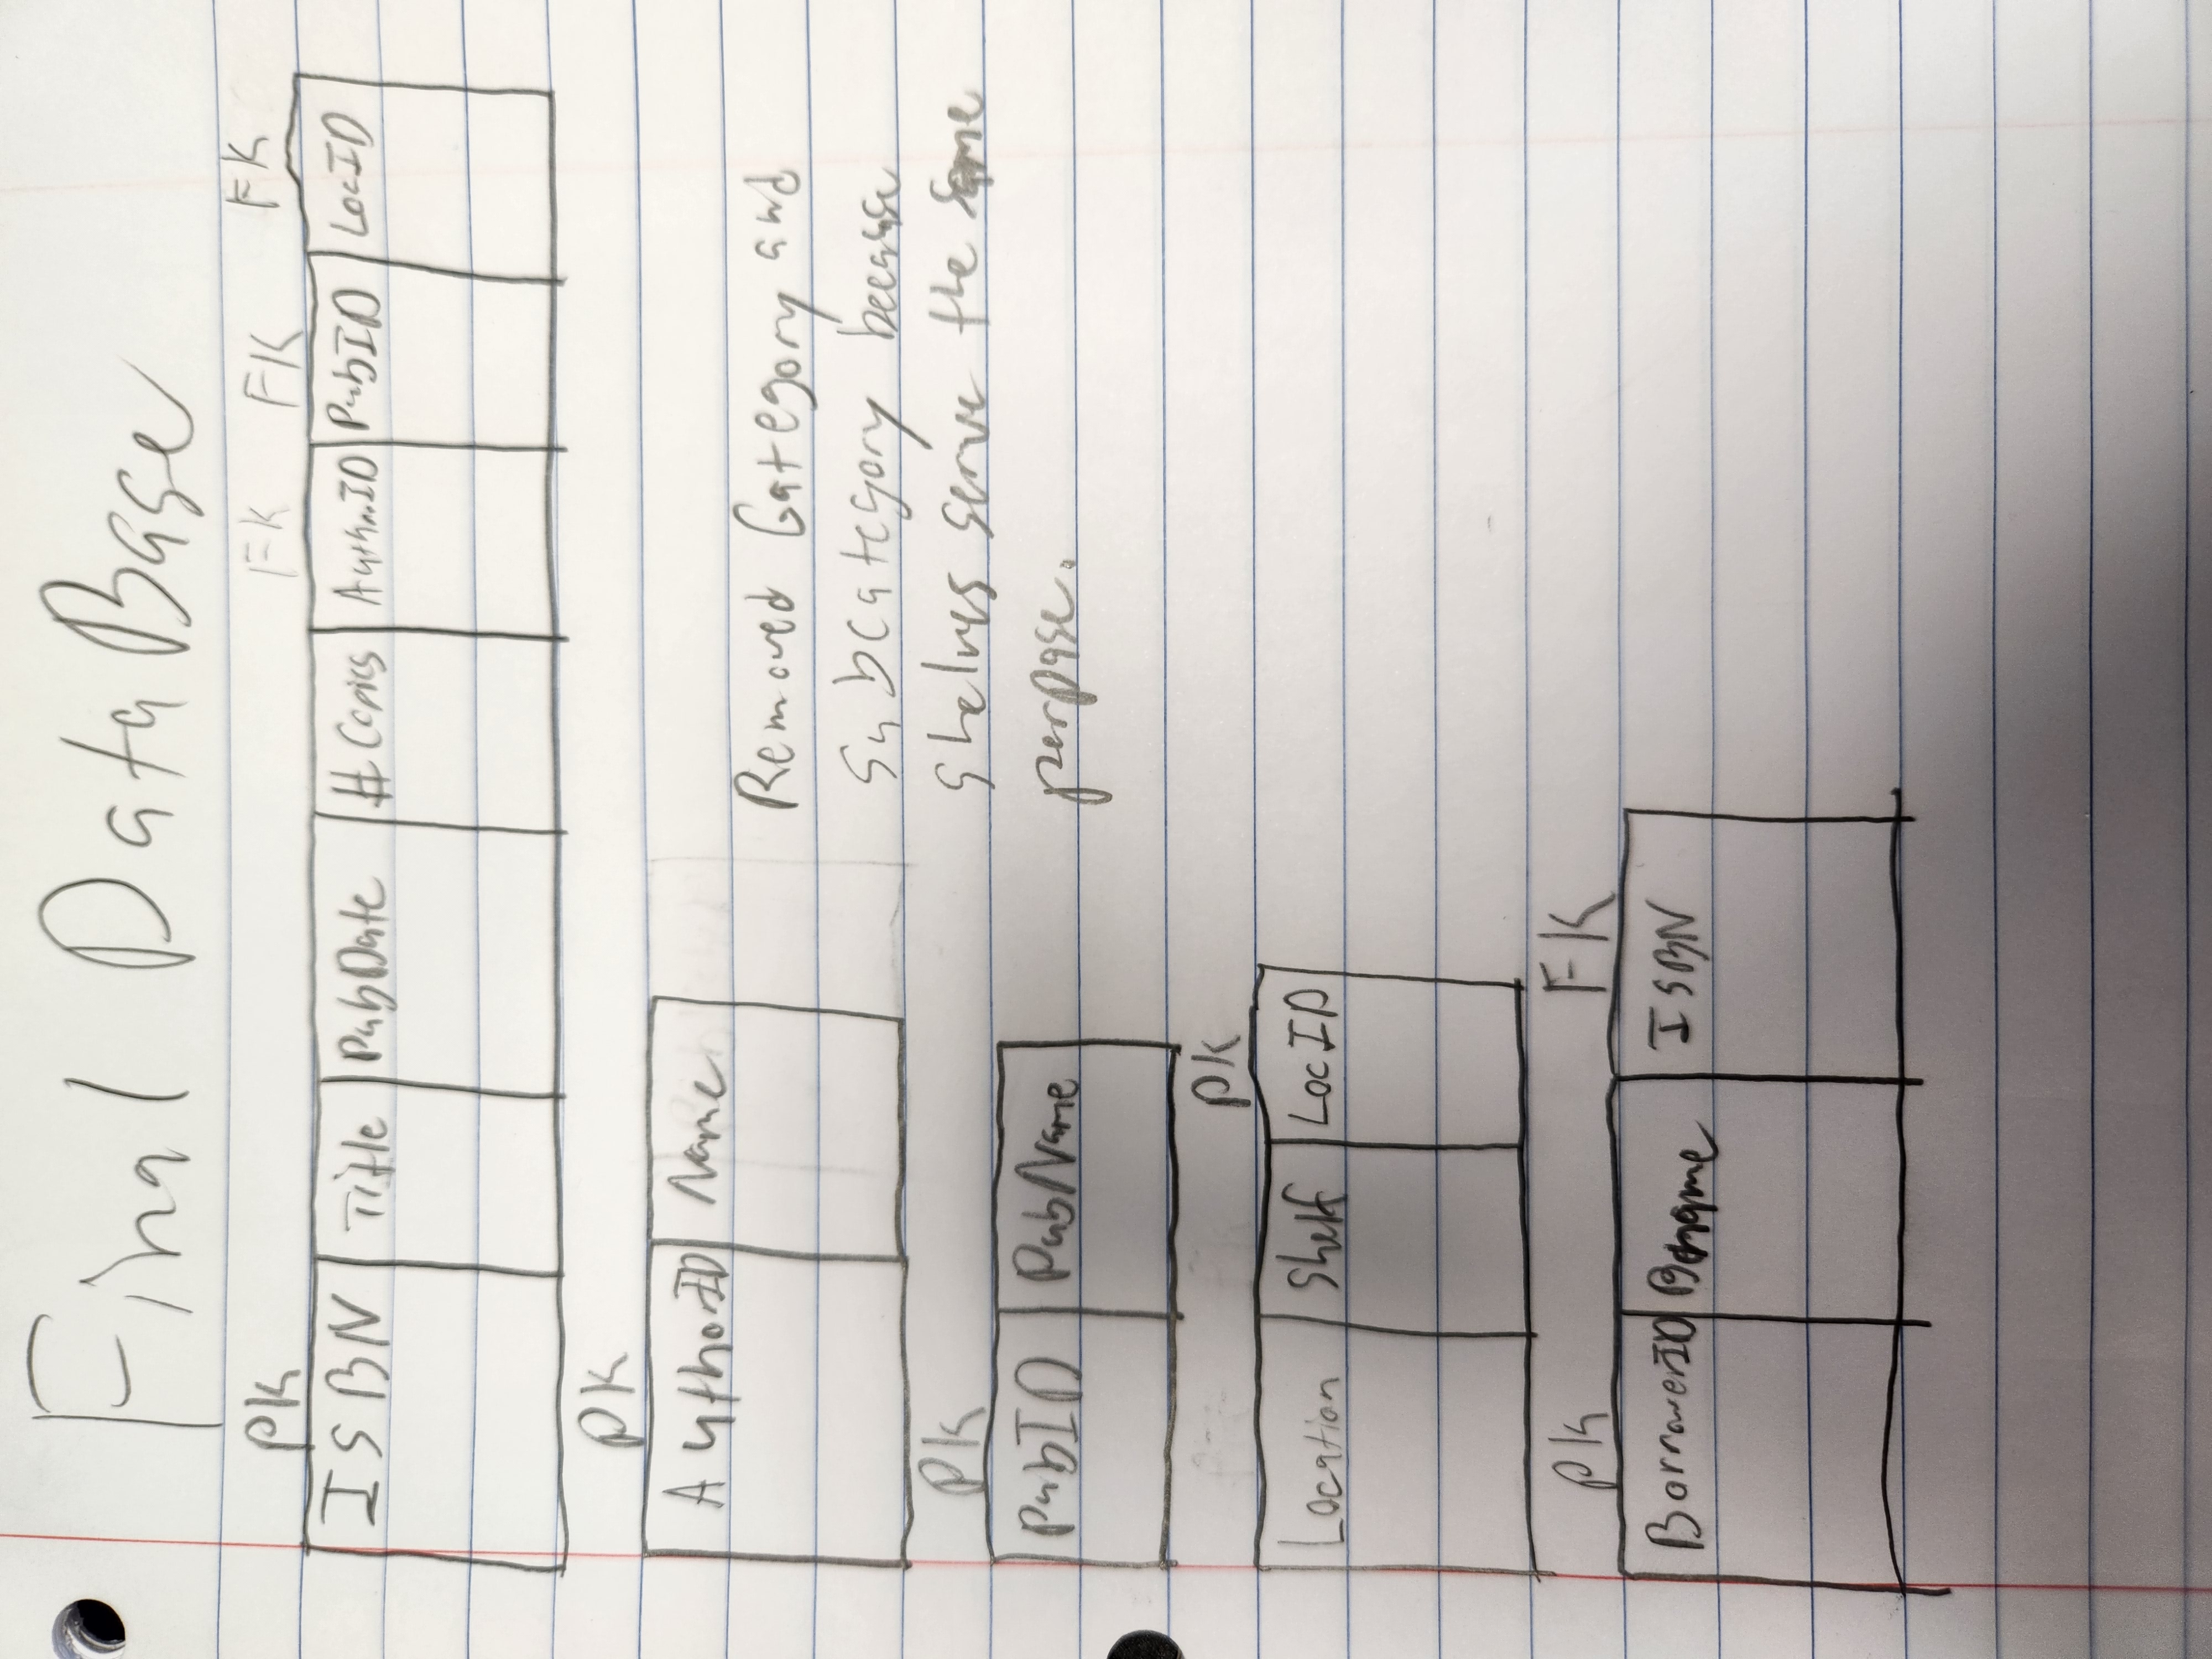 Final DataBase
PK FK FK FK
ISBN Title PubDate #Copies AuthorID PubID LocID
PK
AuthorID Name
Removed Category and
Subcategory because
shelves serve the same
perpose.
PK
PubID PubName
PK
Location Shelf LocID
PK FK
BorrowerID ISBN